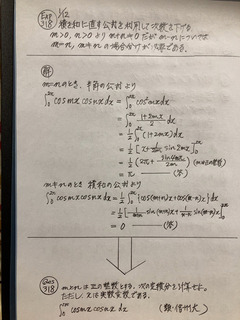 Exp 318 1/12
積を和に直す公式を利用して次数を下げる。
m>0, n>0 より m+n≠0 だが m-n については
m=n, m≠n の場合分けが必要である。
解
m=nのとき、半角の公式より
∫₀^2π cosmx cosnx dx = ∫₀^2π cos²mx dx
= ∫₀^2π (1+cos2mx)/2 dx
= 1/2 ∫₀^2π (1+cos2mx) dx
= 1/2 [x + 1/2m sin2mx]₀^2π
= 1/2 (2π + sin4mπ/2m) (mは正の整数)
= π ――(答)
m≠nのとき 積和の公式より
∫₀^2π cosmx cosnx dx = 1/2 ∫₀^2π {cos(m+n)x + cos(m-n)x} dx
= 1/2 [1/(m+n) sin(m+n)x + 1/(m-n) sin(m-n)x]₀^2π
= 0 ――(答)
Qus 318 mとnは正の整数とする。次の定積分を計算せよ。
ただし、xは実数変数である。
∫₀^2π cosmx cosnx dx (類・信州大)